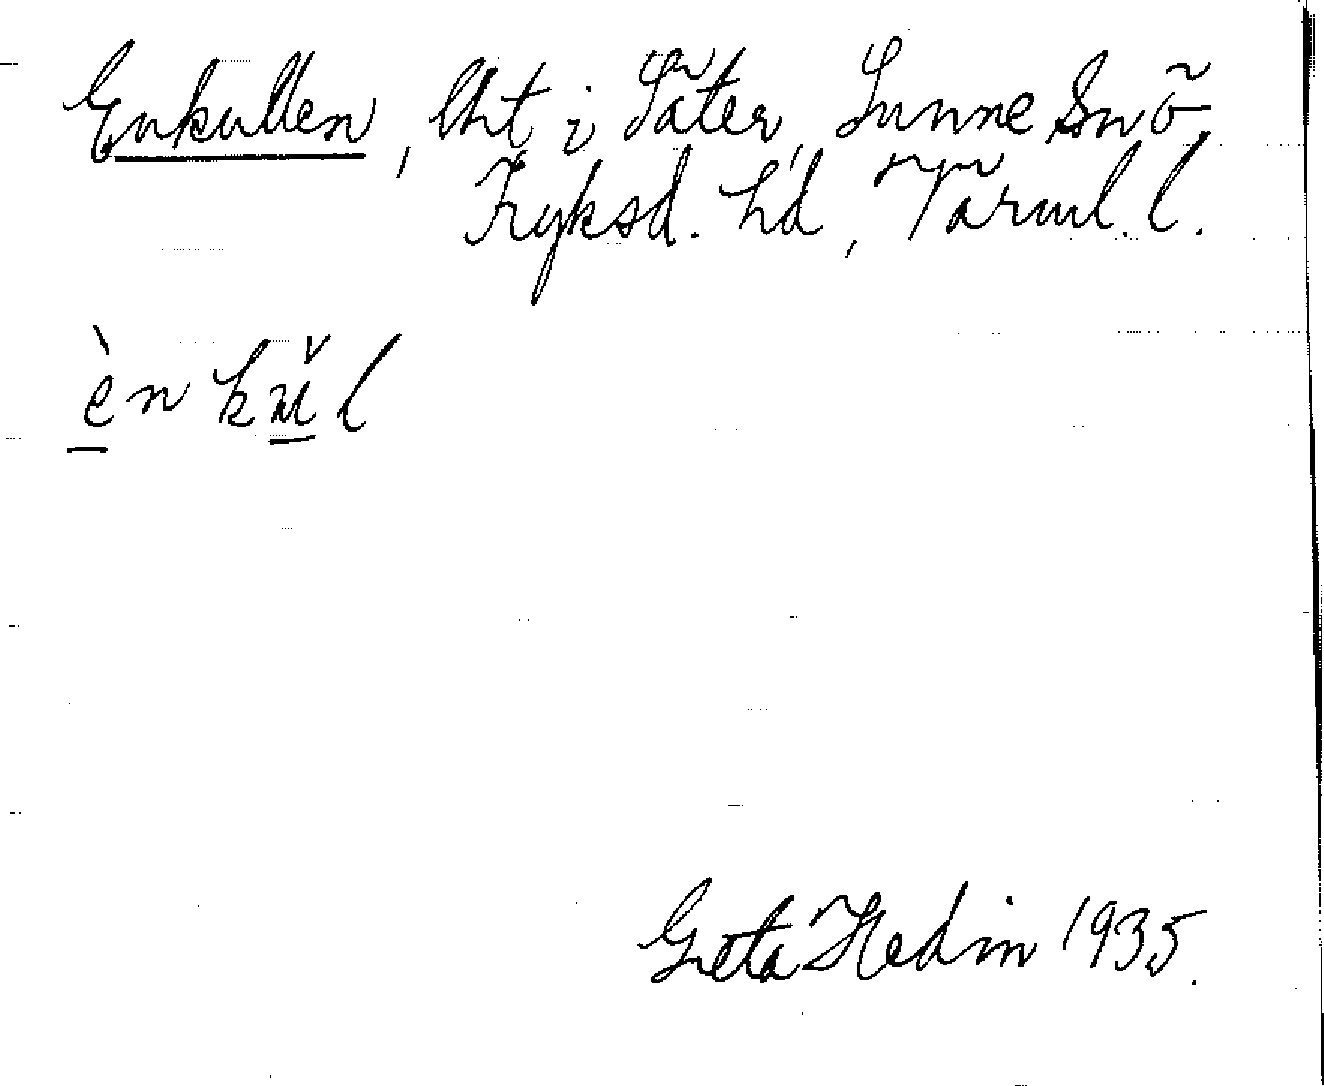 Enkullen, lht i Säter, Sunne Sn ö.
Fryksd. hd, Värml. l.
èn kŭl
Greta Hedin 1935.